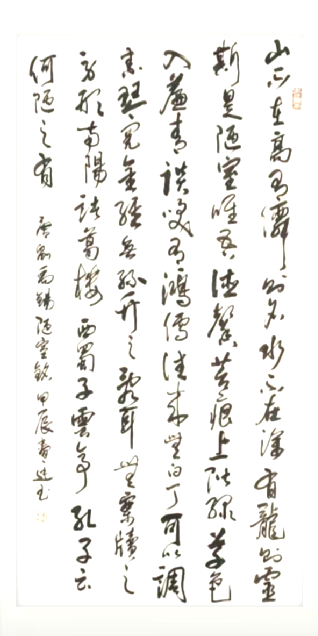 山不在高有僊則名水不在深有龍則靈
斯是陋室唯吾德馨苔痕上階綠草色
入簾青談笑有鴻儒往來無白丁可以調
素琴閱金經無絲竹之亂耳無案牘之
勞形南陽諸葛樓西蜀子雲亭孔子云
何陋之有 唐劉禹錫陋室銘甲辰書